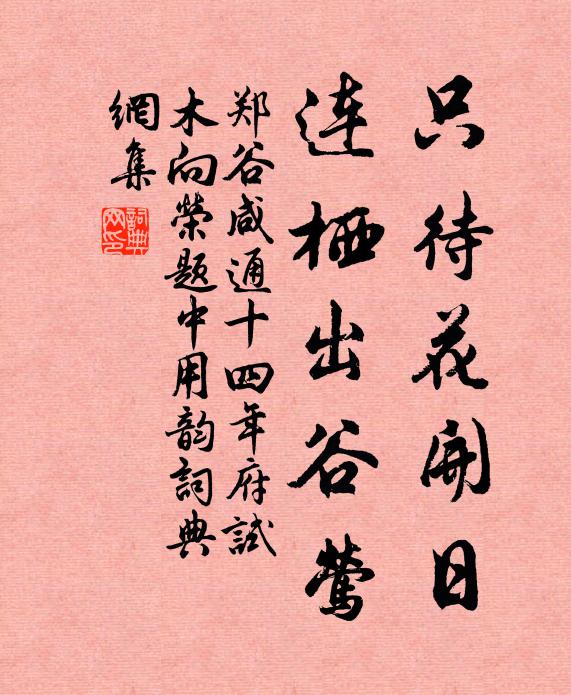 只待花開日
连栖出谷莺
郑谷咸通十四年府試
木向榮題中用韵詞典
網集
詞典
网印